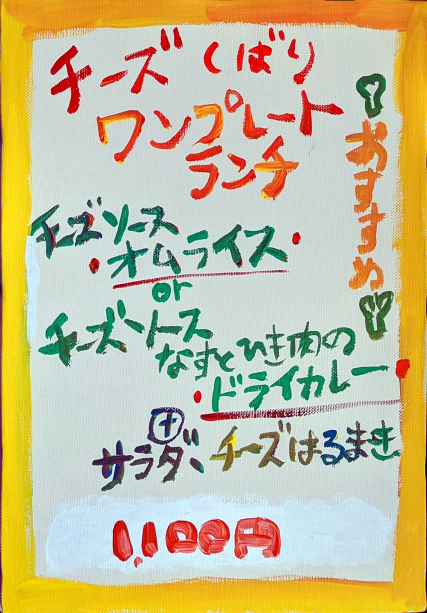 チーズ くばり
ワンプレート
ランチ
おすすめ
チーズソース
・オムライス・
or
チーズソース
なすとひき肉の
・ドライカレー・
+
サラダ、チーズはるまき
1,100円